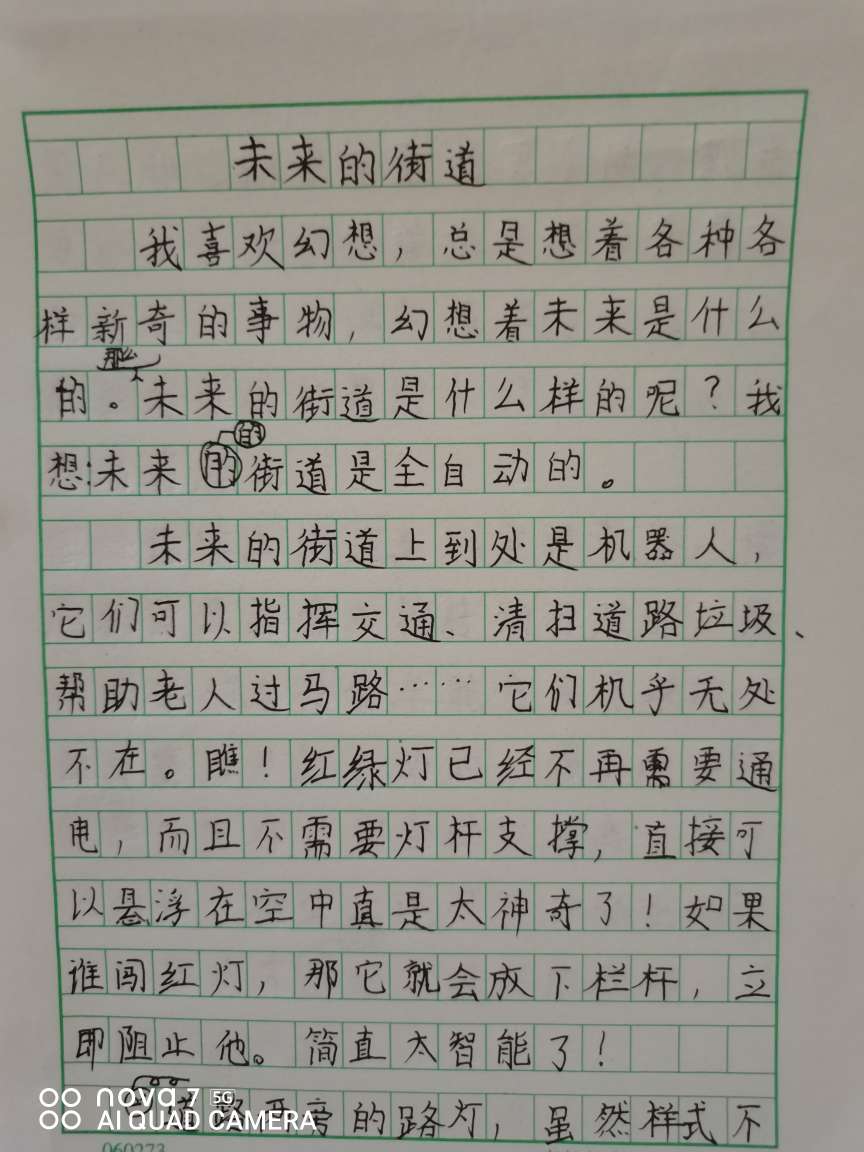 未来的街道
我喜欢幻想，总是想着各种各
样新奇的事物，幻想着未来是什么
那么
的。未来的街道是什么样的呢？我
的
想:未来的街道是全自动的。
未来的街道上到处是机器人，
它们可以指挥交通、清扫道路垃圾、
帮助老人过马路……它们机乎无处
不在。瞧！红绿灯已经不再需要通
电，而且不需要灯杆支撑，直接可
以悬浮在空中真是太神奇了！如果
谁闯红灯，那它就会放下栏杆，立
即阻止他。简直太智能了！
道路两旁的路灯，虽然样式不
nova 7 5G
AI QUAD CAMERA
060273